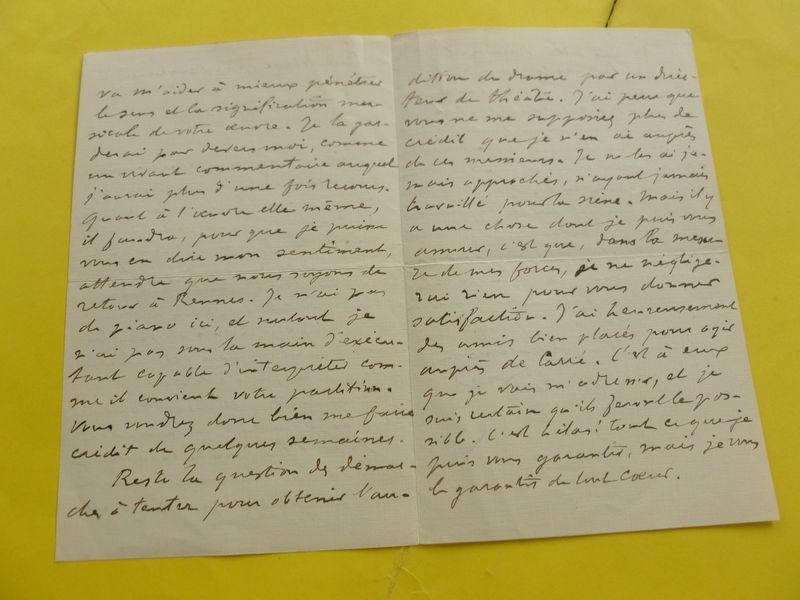 va m'aider à mieux pénétrer
le sens et la signification mu-
sicale de votre œuvre. Je la gar-
derai par devers moi, comme
un vivant commentaire auquel
j'aurai plus d'une fois recours.
Quant à l'œuvre elle même,
il faudra, pour que je puisse
vous en dire mon sentiment,
attendre que nous soyons de
retour à Rennes. Je n'ai pas
de piano ici, et surtout je
n'ai pas sous la main d'exécu-
tant capable d'interpréter com-
me il convient votre partition.
Vous voudrez donc bien me faire
crédit de quelques semaines.
Reste la question des démar-
ches à tenter pour obtenir l'au-
dition du drame par un direc-
teur de théâtre. J'ai peur que
vous ne me supposiez plus de
crédit que je n'en ai auprès
de ces messieurs. Je ne les ai ja-
mais approchés, n'ayant jamais
travaillé pour la scène. Mais il y
a une chose dont je puis vous
assurer, c'est que, dans la mesu-
re de mes forces, je ne néglige-
rai rien pour vous donner
satisfaction. J'ai heureusement
des amis bien placés pour agir
auprès de Carré. C'est à eux
que je vais m'adresser, et je
suis certain qu'ils feront le pos-
sible. C'est hélas! tout ce que je
puis vous garantir, mais je vous
le garantis de tout cœur.